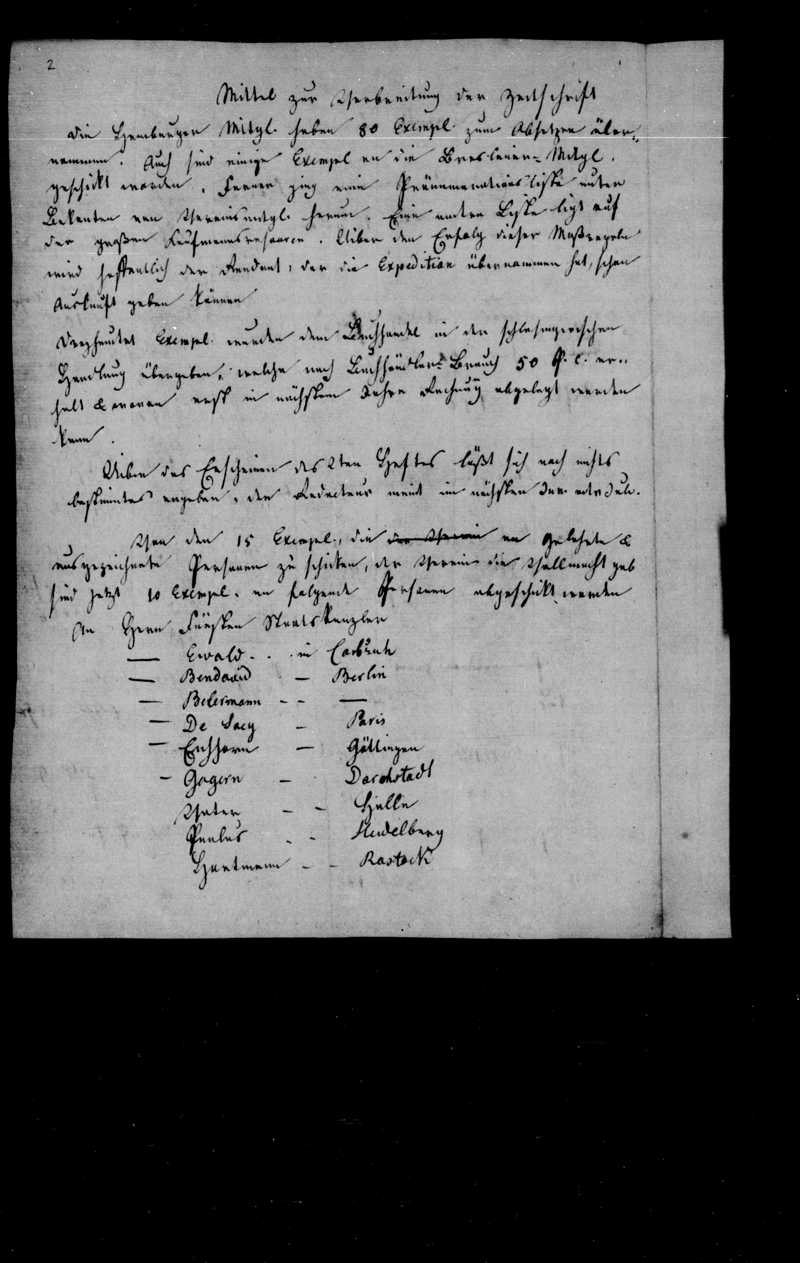 2
Mittel zur Verbreitung der Zeitschrift
Die Hamburger Mitgl. haben 80 Exempl. zum Absetzen über-
nommen. Auch sind einige Exempl an die Breslauer-Mitgl.
geschikt worden. Ferner ging eine Pränumerationsliste unter
Bekanten von Vereinsmitgl. herum. Eine andre Liste ligt auf
der großen Kaufmannsressource. Ueber den Erfolg dieser Maßregeln
wird hoffentlich der Rendant, der die Expedition übernommen hat, schon
Auskunft geben können
Dreyhundert Exempl. wurden dem Buchhandel in der schlesingerischen
Handlung übergeben, welche nach Buchhändler-Brauch 50 p. c. er-
hält & wovon erst in nächstem Jahre Rechnung abgelegt werden
kann.
Ueber das Erscheinen des 2ten Heftes läßt sich noch nichts
bestimtes angeben, der Redacteur meint im nächsten Jun. oder Juli.
Von den 15 Exempl., die der Verein an gelehrte &
ausgezeichnete Personen zu schicken, der Verein die Vollmacht gab
sind jetzt 10 Exempl. an folgende Personen abgeschikt worden
An Herrn Fürsten Staatskanzler
— Ewald . . in Carlsruh
— Bendavid — Berlin
— Belermann - - —
— De Sacy - Paris
— Eichhorn — Göttingen
- Gagern - Darmstadt
Vater - - Halle
Paulus - - Heidelberg
Hartmann - - Rostock